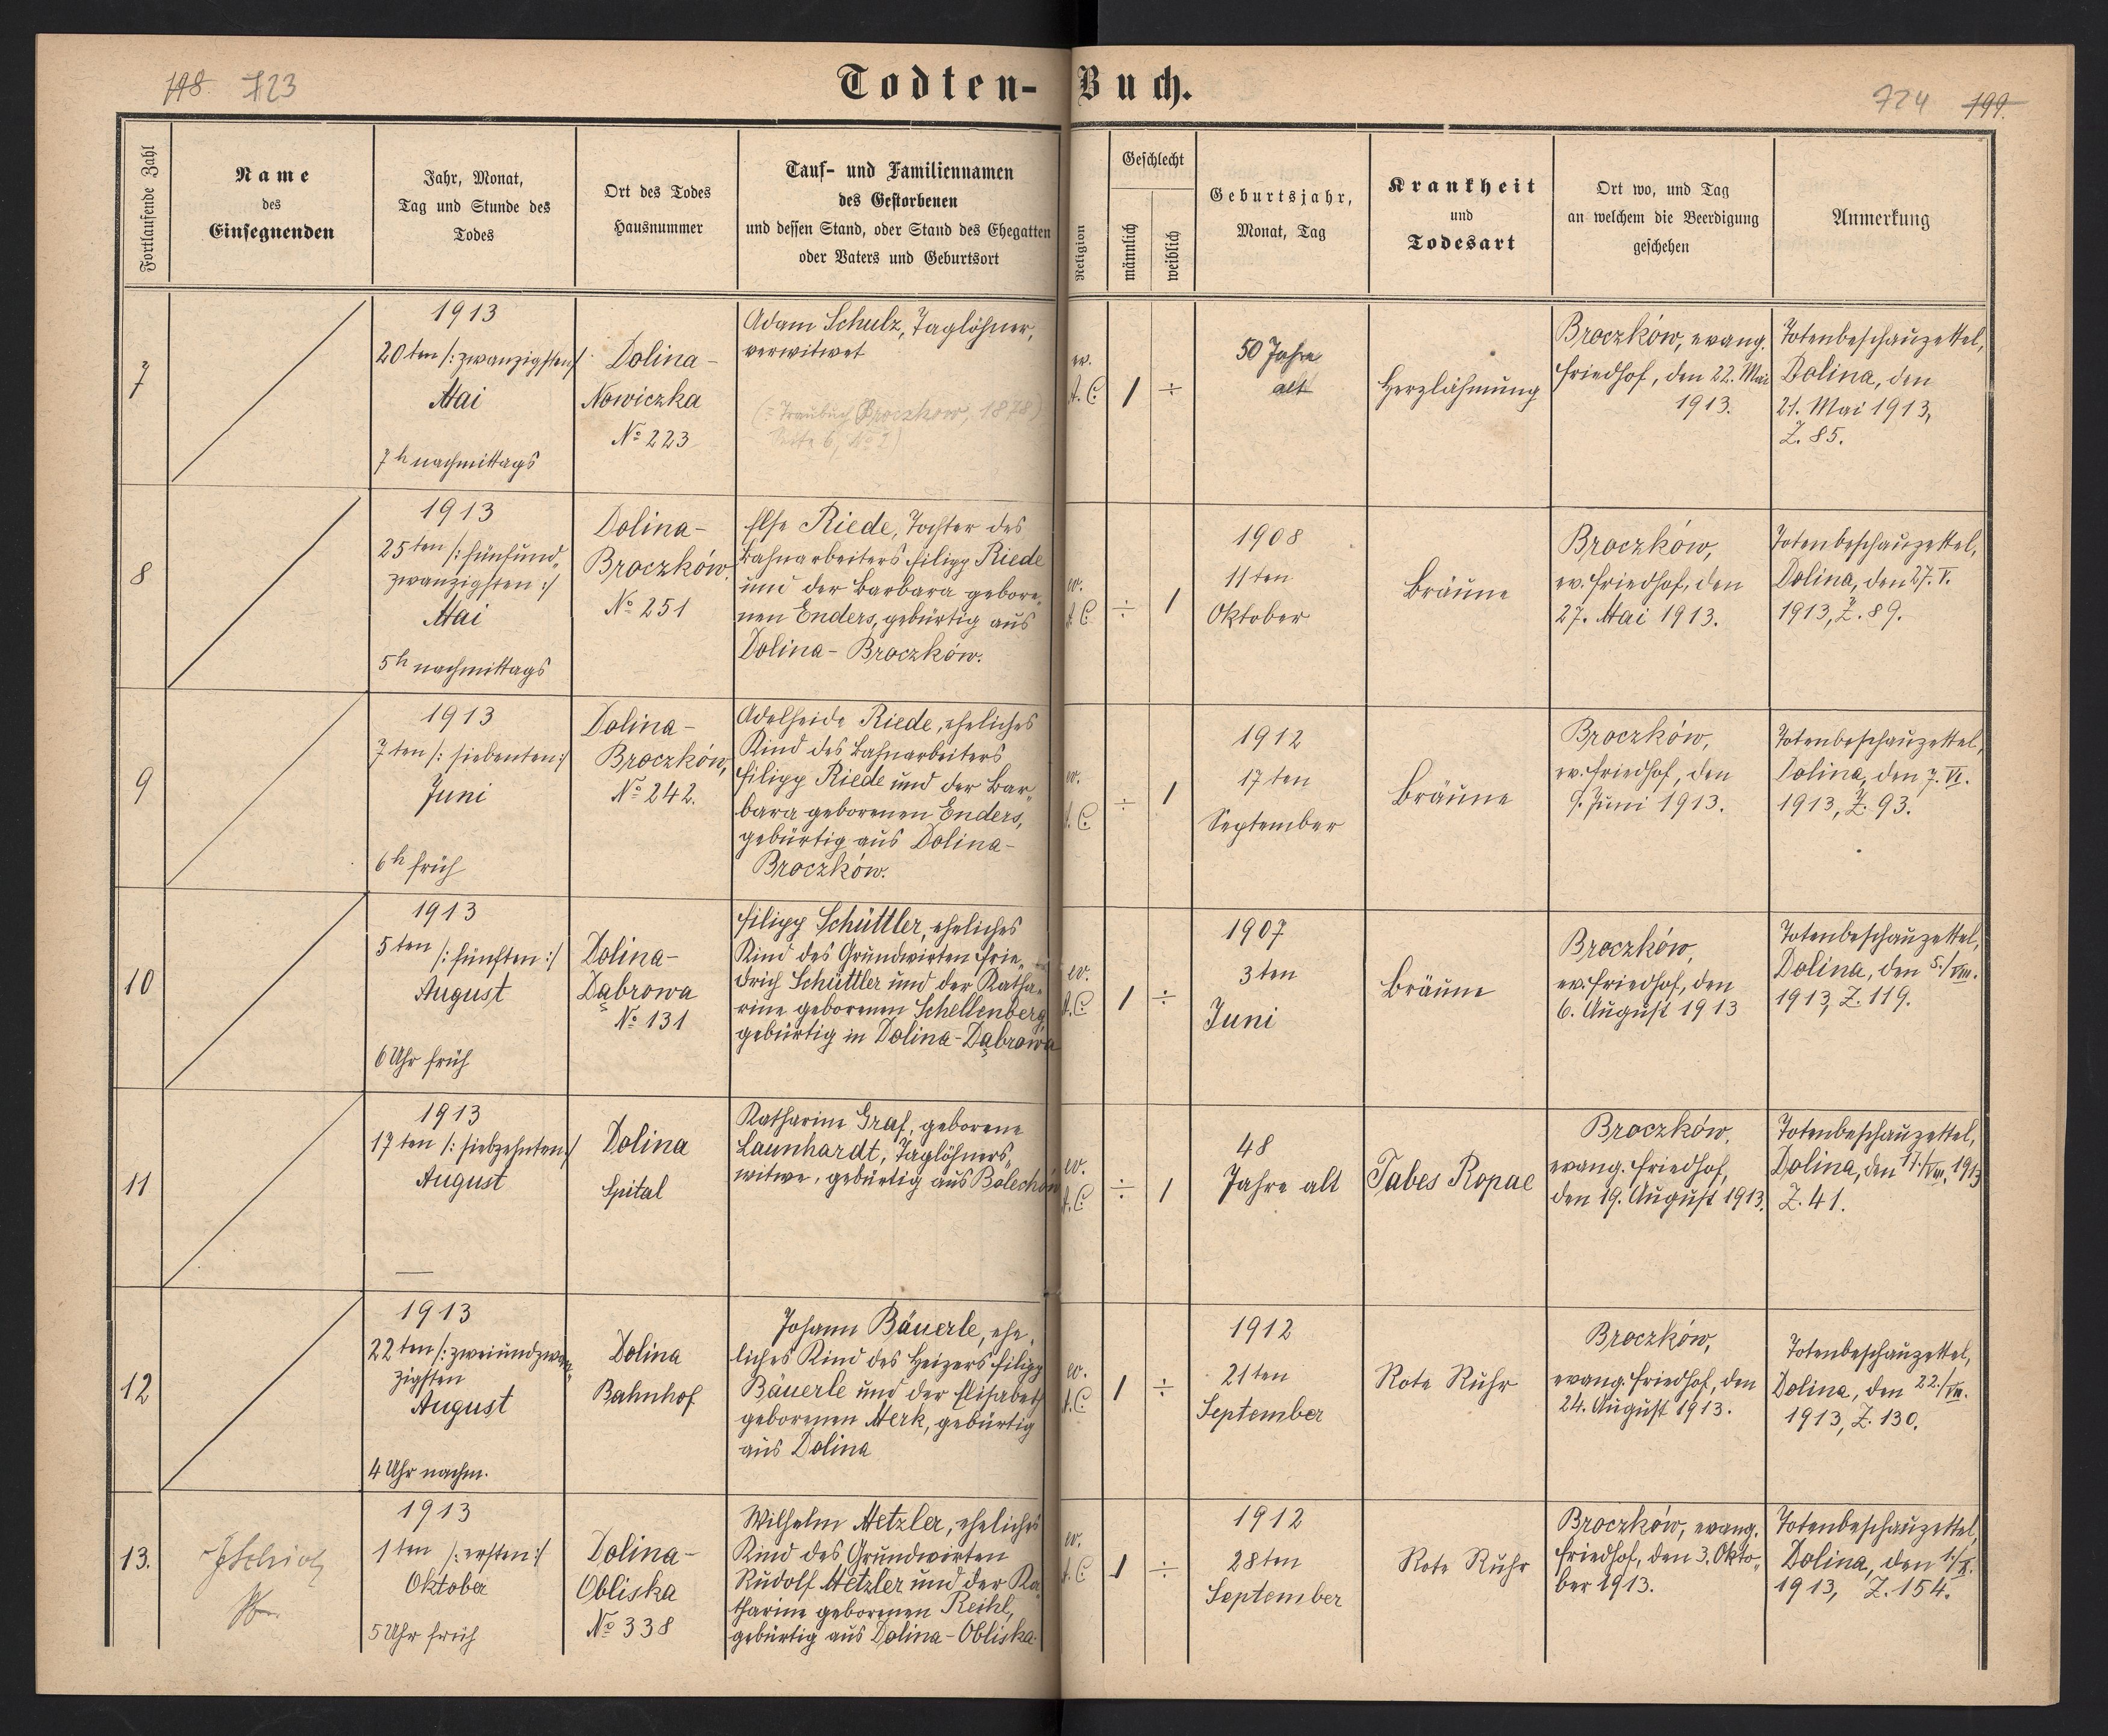 198. 723
Todten-Buch.
724 199.
Fortlaufende Zahl
Name
des
Einsegnenden
Jahr, Monat,
Tag und Stunde des
Todes
Ort des Todes
Hausnummer
Tauf- und Familiennamen
des Gestorbenen
und dessen Stand, oder Stand des Ehegatten
oder Vaters und Geburtsort
Religion
Geschlecht
männlich
weiblich
Geburtsjahr,
Monat, Tag
Krankheit
und
Todesart
Ort wo, und Tag
an welchem die Beerdigung
geschehen
Anmerkung
7
1913
20ten /: zwanzigsten :/
Mai
7h nachmittags
Dolina-
Nowiczka
№ 223
Adam Schulz, Taglöhner,
verwitwet
(: Traubuch Broczkow, 1878
Seite 6, №
ev.
A.C.
1
÷
50 Jahre
alt
Herzlähmung
Broczków, evang.
Friedhof, den 22. Mai
1913.
Totenbeschauzettel,
Dolina, den
21. Mai 1913,
Z. 85.
8
1913
25ten /: fünfund-
zwanzigsten :/
Mai
5h nachmittags
Dolina-
Broczków
№ 251
Else Riede, Tochter des
Bahnarbeiters Filipp Riede
und der Barbara gebore-
nen Enders, gebürtig aus
Dolina-Broczków.
ev.
A.C.
÷
1
1908
11ten
Oktober
Bräune
Broczków,
ev. Friedhof, den
27. Mai 1913.
Totenbeschauzettel,
Dolina, den 27. V.
1913, Z. 89.
9
1913
7ten /: siebenten :/
Juni
6h früh
Dolina-
Broczków,
№ 242.
Adelheide Riede, eheliches
Kind des Bahnarbeiters
Filipp Riede und der Bar-
bara geborenen Enders,
gebürtig aus Dolina-
Broczków.
ev.
A.C.
÷
1
1912
17ten
September
Bräune
Broczków,
ev. Friedhof, den
9. Juni 1913.
Totenbeschauzettel,
Dolina, den 7. VI.
1913, Z. 93.
10
1913
5ten /: fünften :/
August
6 Uhr früh
Dolina-
Dąbrowa
№ 131
Filipp Schüttler, eheliches
Kind des Grundwirten Frie-
drich Schüttler und der Katha-
rine geborenen Schellenberg,
gebürtig in Dolina-Dąbrowa
ev.
A.C.
1
÷
1907
3ten
Juni
Bräune
Broczków,
ev. Friedhof, den
6. August 1913
Totenbeschauzettel,
Dolina, den 5./VIII.
1913, Z. 119.
11
1913
17ten /: siebzehnten :/
August
—
Dolina
Spital
Katharine Graf, geborene
Launhardt, Taglöhners-
witwe, gebürtig aus Bolechów
ev.
A.C.
÷
1
48
Jahre alt
Tabes Ropae
Broczków,
evang. Friedhof,
den 19. August 1913.
Totenbeschauzettel,
Dolina, den /VIII. 1913
Z. 41.
12
1913
22ten /: zweiundzwan-
zigsten
August
4 Uhr nachm.
Dolina
Bahnhof
Johann Bäuerle, ehe-
liches Kind des Heizers Filipp
Bäuerle und der Elisabeth
geborenen Merk, gebürtig
aus Dolina
ev.
A.C.
1
÷
1912
21ten
September
Rote Ruhr
Broczków,
evang. Friedhof, den
24. August 1913.
Totenbeschauzettel,
Dolina, den 22./VIII.
1913, Z. 130.
13.
1913
1ten /: ersten :/
Oktober
5 Uhr früh
Dolina-
Obliska
№ 338
Wilhelm Metzler, eheliches
Kind des Grundwirten
Rudolf Metzler und der Ka-
tharine geborenen Reihl,
gebürtig aus Dolina-Obliska.
ev.
A.C.
1
÷
1912
28ten
September
Rote Ruhr
Broczków, evang.
Friedhof, den 3. Okto-
ber 1913.
Totenbeschauzettel,
Dolina, den 1./X.
1913, Z. 154.